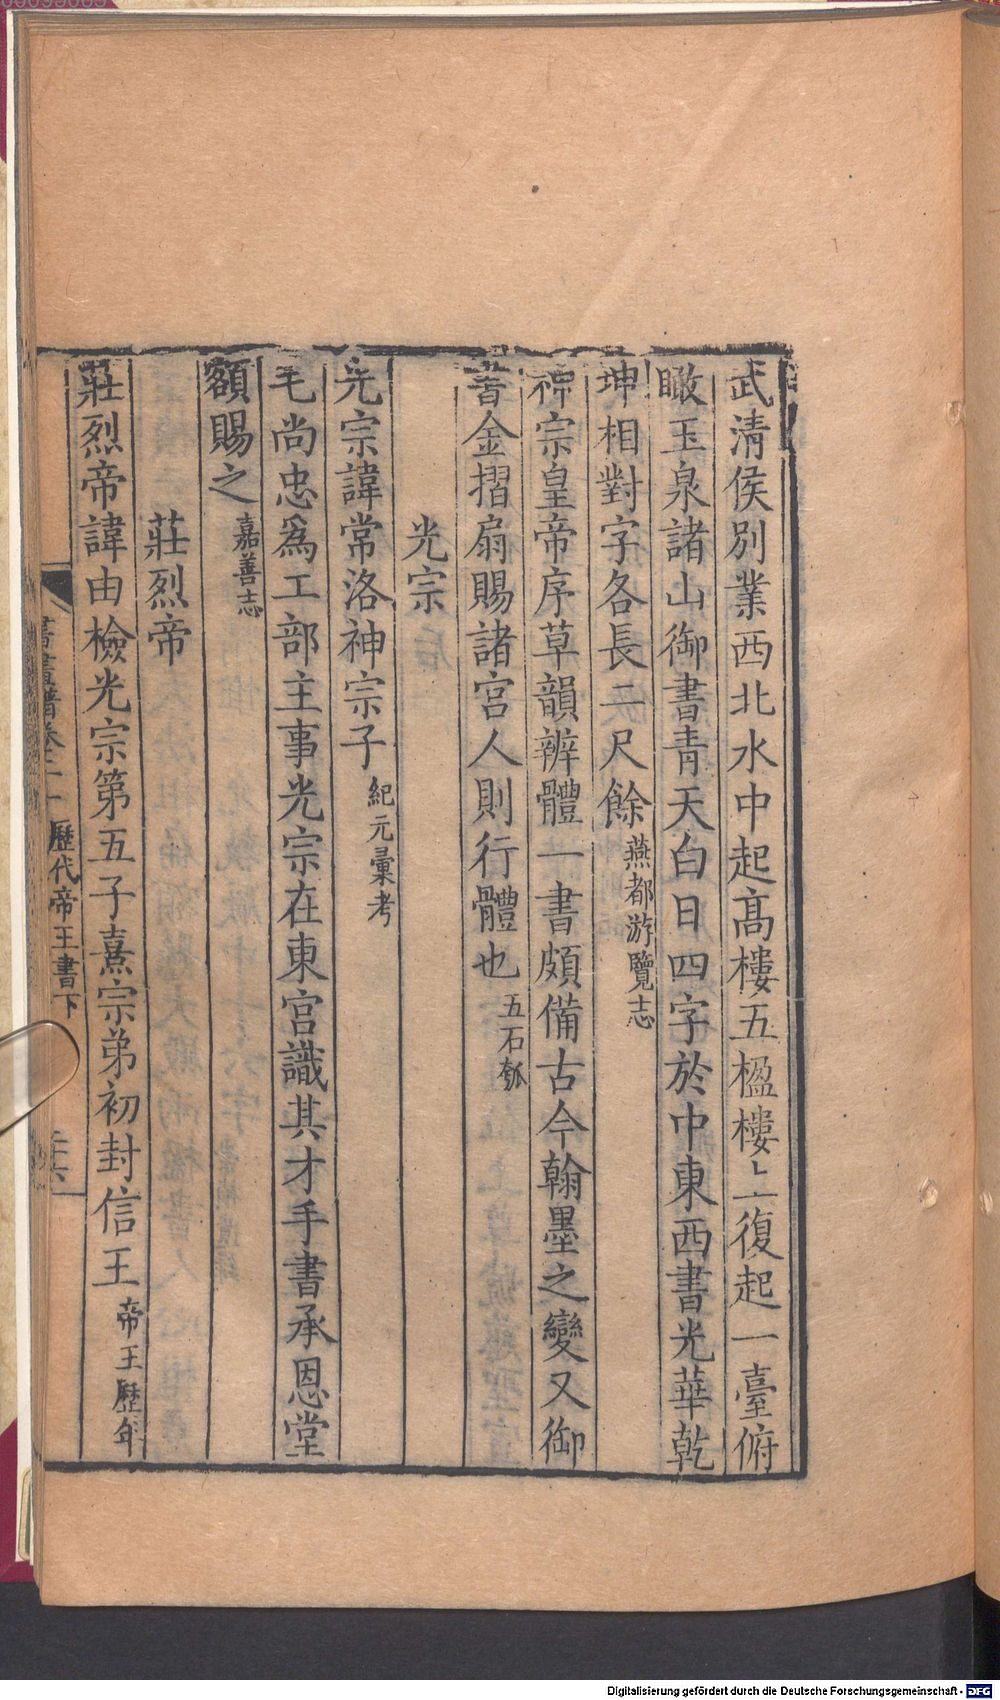 武清侯別業西北水中起高樓五楹樓上復起一臺俯
瞰玉泉諸山御書青天白日四字於中東西書光華乾
坤相對字各長二尺餘燕都游覽志
神宗皇帝序草韻辨體一書頗備古今翰墨之變又御
書金摺扇賜諸宮人則行體也五石瓠
光宗
光宗諱常洛神宗子紀元彙考
毛尚忠為工部主事光宗在東宮識其才手書承恩堂
額賜之嘉善志
莊烈帝
莊烈帝諱由檢光宗第五子熹宗弟初封信王帝王歷年
書畫譜卷二十 歷代帝王書下
Digitalisierung gefördert durch die Deutsche Forschungsgemeinschaft - DFG